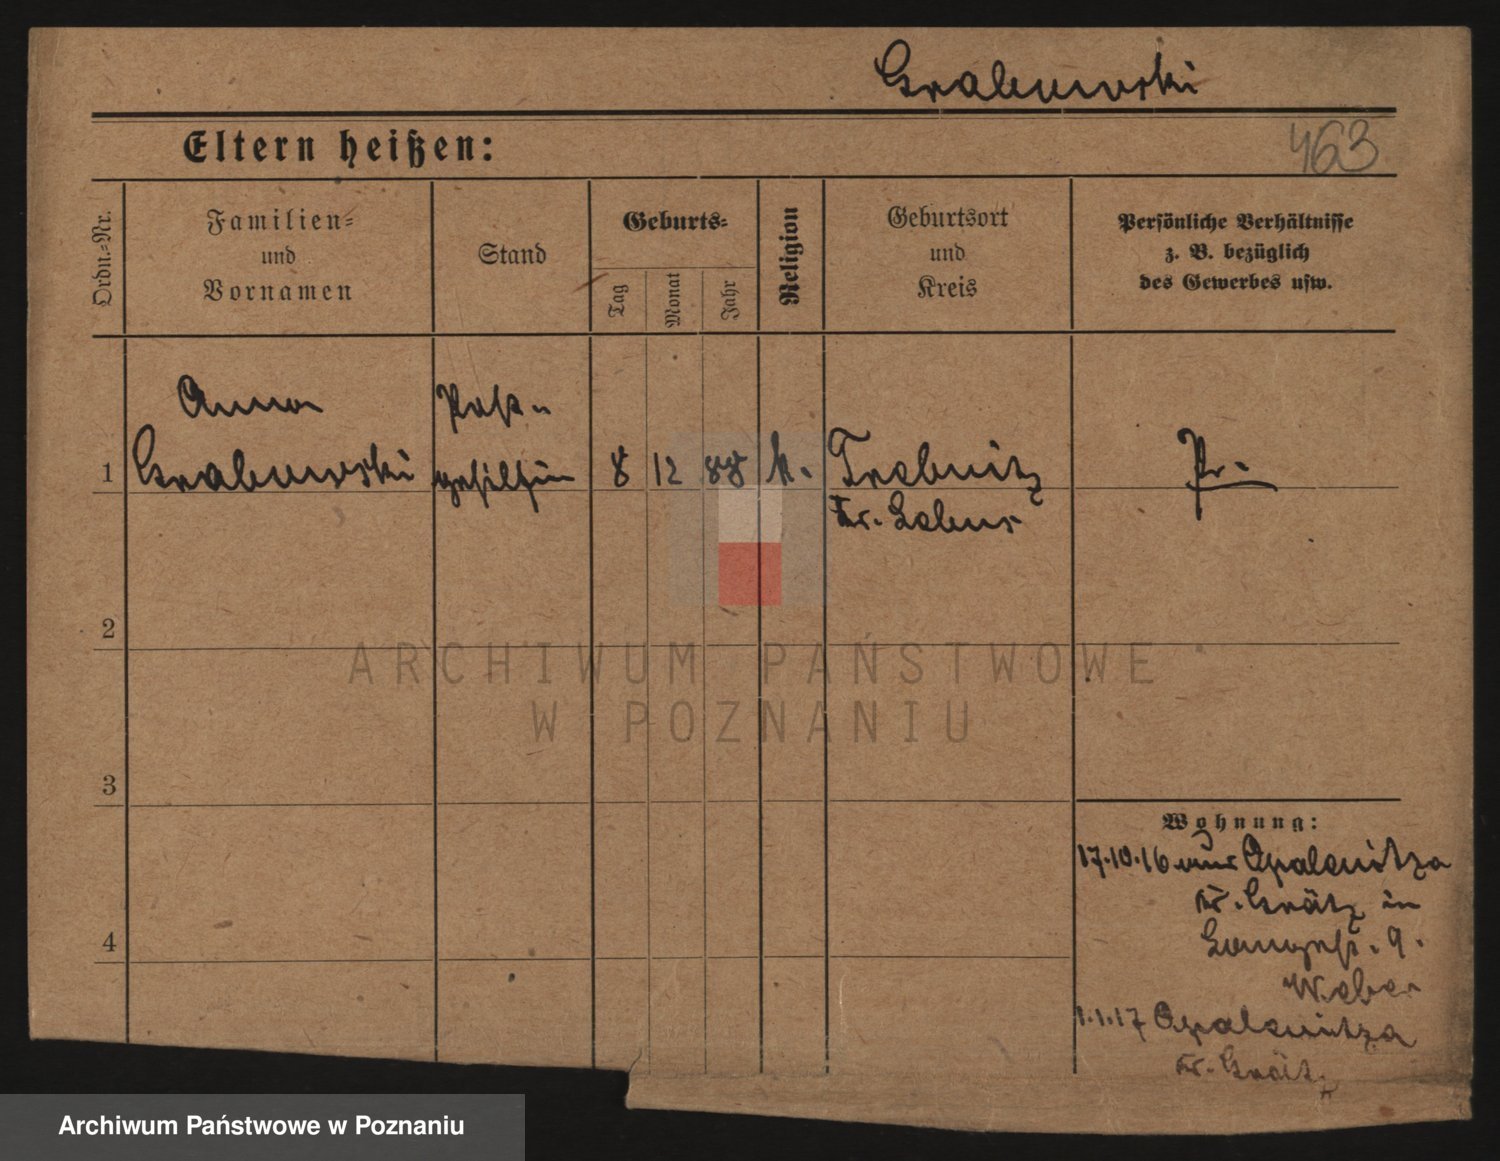 Grabowski
Eltern heißen:
463
Ordn.-Nr.
Familien-
und
Vornamen
Stand
Geburts-
Tag
Monat
Jahr
Religion
Geburtsort
und
Kreis
Persönliche Verhältnisse
z. B. bezüglich
des Gewerbes usw.
Anna
Post-
1 Grabowski gehilfin 8 12 88 k. Trebnitz Pr.
Kr. Lebus
2
ARCHIWUM PAŃSTWOWE
W POZNANIU
3
Wohnung:
17.10.16 aus Opalenitza
Kr. Grätz in
Langestr. 9.
Weber
4
1.1.17 Opalenitza
Kr. Grätz
Archiwum Państwowe w Poznaniu